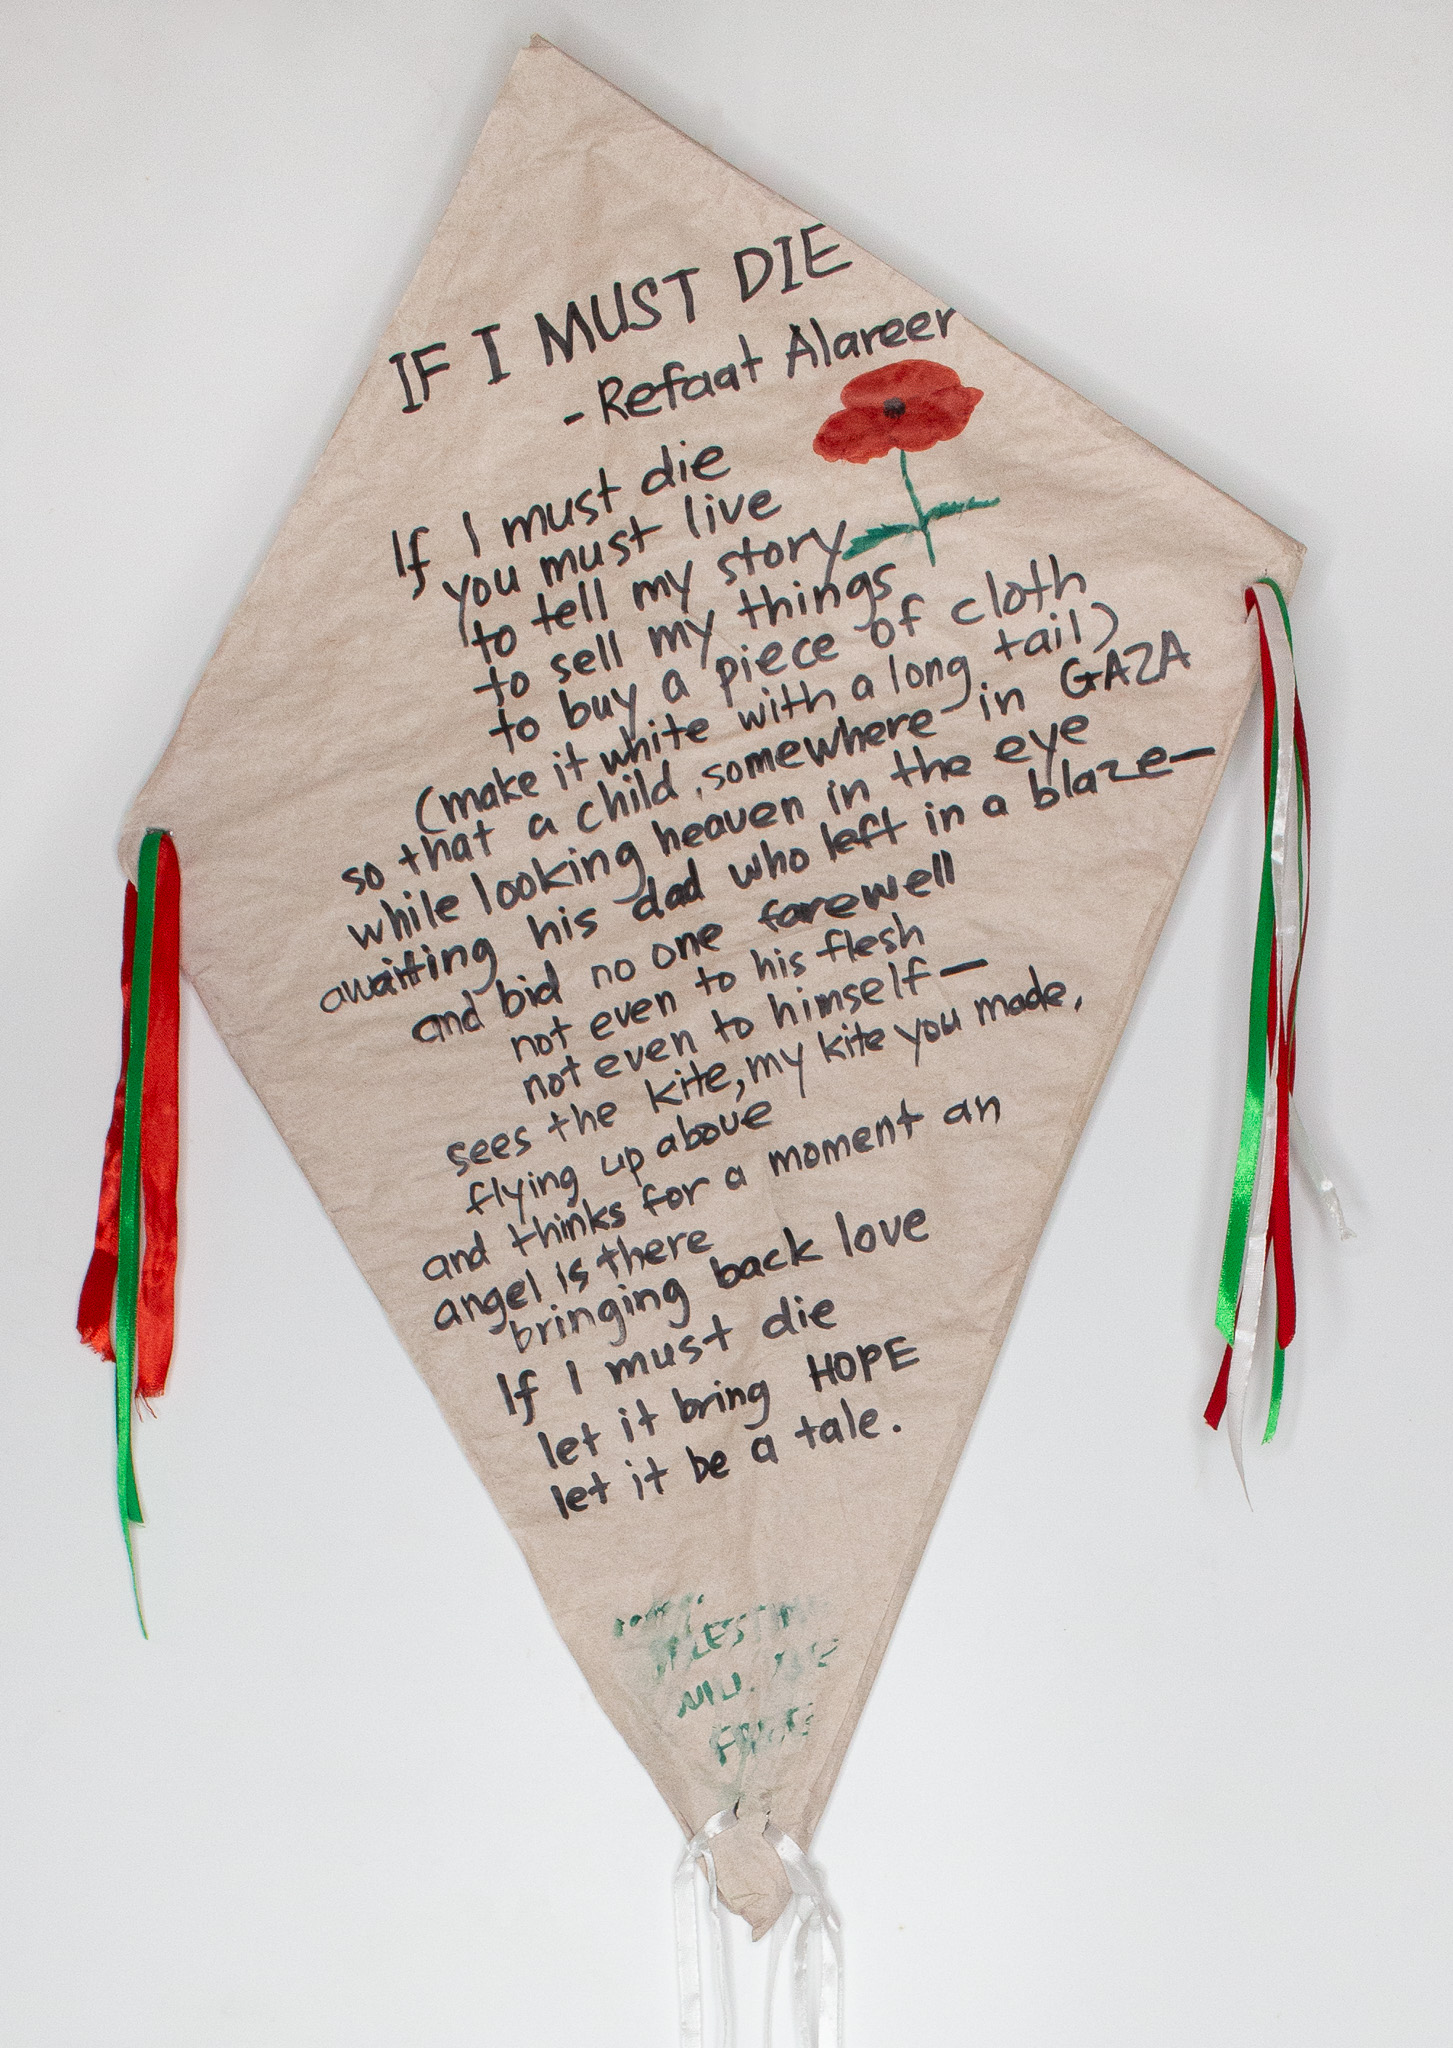 IF I MUST DIE
- Refaat Alareer
If I must die
you must live
to tell my story
to sell my things
to buy a piece of cloth
(make it white with a long tail)
so that a child, somewhere in GAZA
while looking heaven in the eye
awaiting his dad who left in a blaze—
and bid no one farewell
not even to his flesh
not even to himself—
sees the kite, my kite you made,
flying up above
and thinks for a moment an
angel is there
bringing back love
If I must die
let it bring HOPE
let it be a tale.